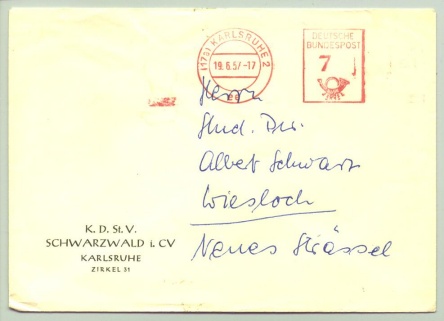 (17a) KARLSRUHE 2
19.6.57-17
ee
DEUTSCHE
BUNDESPOST
7
Herrn
Stud. Dir.
Albert Schwarz
Wiesloch
Neues Strässel
K. D. St. V.
SCHWARZWALD i. CV
KARLSRUHE
ZIRKEL 31